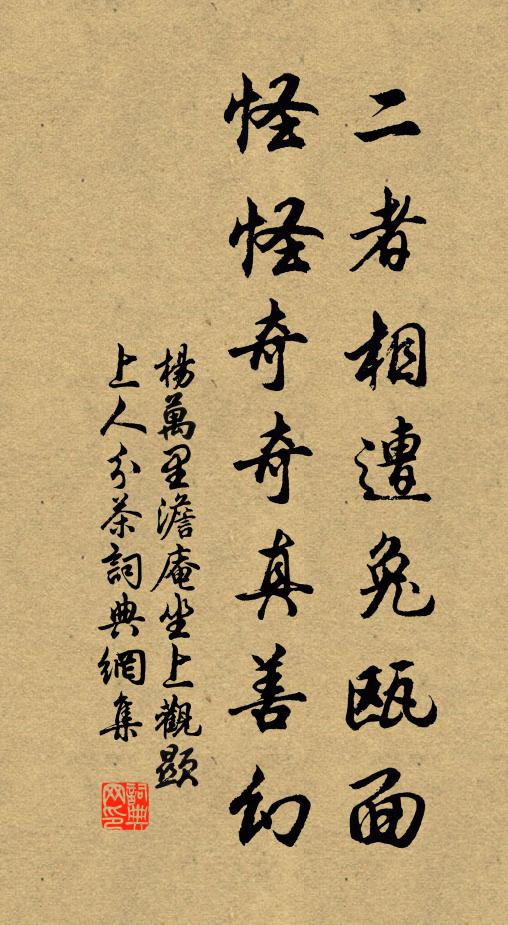 二者相遭兔甌面
怪怪奇奇真善幻
楊萬里澹庵坐上觀顯
上人分茶詞典網集
詞典网印